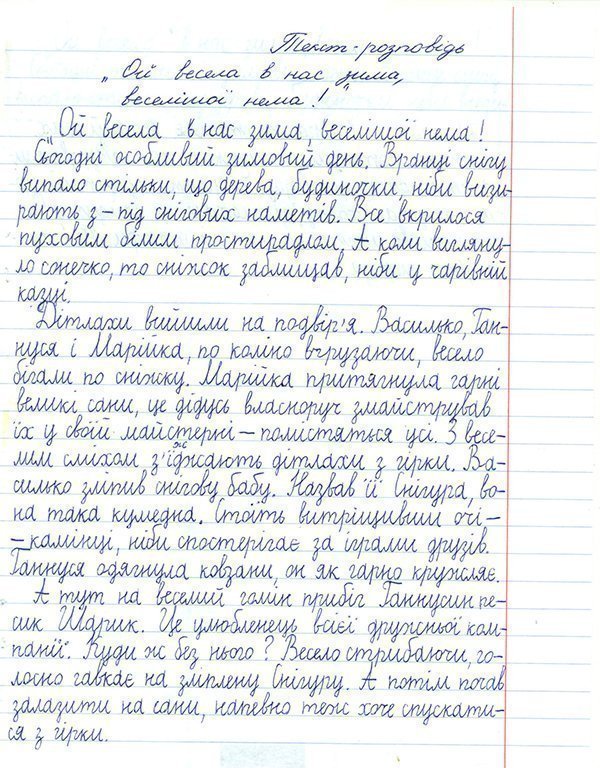 Текст-розповідь
„Ой весела в нас зима,
веселішої нема!"
„Ой весела в нас зима, веселішої нема!
Сьогодні особливий зимовий день. Вранці снігу
випало стільки, що дерева, будиночки, ніби визи-
рають з-під снігових наметів. Все вкрилося
пуховим білим простирадлом. А коли вигляну-
ло сонечко, то сніжок заблищав, ніби у чарівній
казці.
Дітлахи вийшли на подвір'я. Василько, Ган-
нуся і Марійка, по коліно вгрузаючи, весело
бігали по сніжку. Марійка притягнула гарні
великі сани, це дідусь власноруч змайстрував
їх у своїй майстерні – помістяться усі. З весе-
лим сміхом з'їжджають дітлахи з гірки. Ва-
силько зліпив снігову бабу. Назвав її Снігура, во-
на така кумедна. Стоїть витріщивши очі –
– камінці, ніби спостерігає за іграми друзів.
Ганнуся одягнула ковзани, он як гарно кружляє.
А тут на веселий гомін прибіг Ганнусин пе-
сик Шарик. Це улюбленець всієї дружньої ком-
панії. Куди ж без нього? Весело стрибаючи, го-
лосно гавкає на зліплену Снігуру. А потім почав
залазити на сани, напевно теж хоче спускати-
ся з гірки.